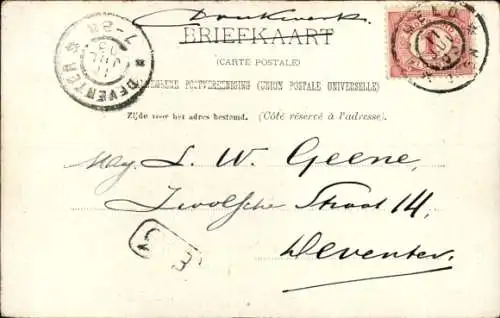 Drukwerk.
BRIEFKAART
(CARTE POSTALE)
ALGEMEENE POSTVEREENIGING (UNION POSTALE UNIVERSELLE)
Zijde voor het adres bestemd. (Côté réservé à l'adresse).
DEVENTER
7-8N
1
Mej. L. W. Geene,
Zwolsche Straat 14,
Deventer.